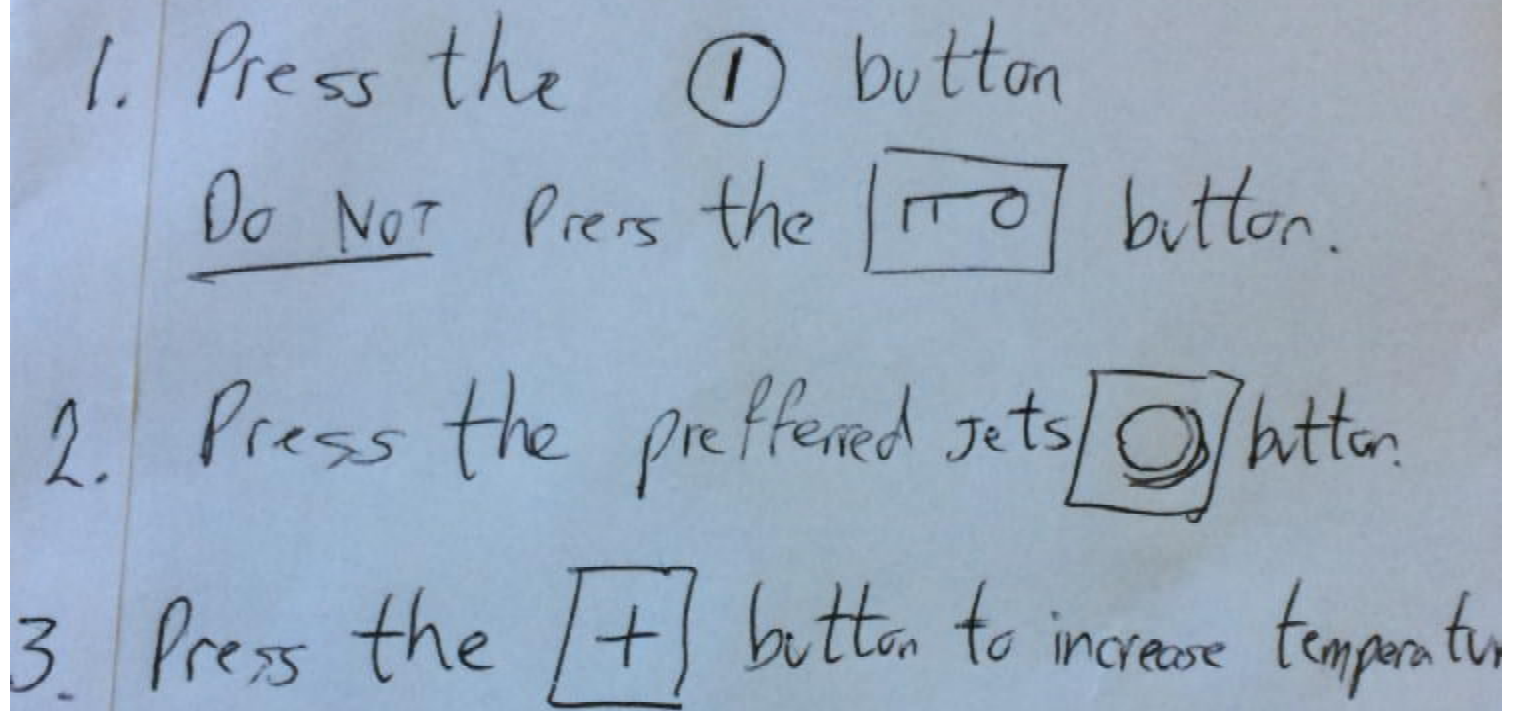 1. Press the ① button
Do NOT Press the button.
2. Press the preffered Jets button.
3. Press the + button to increase temperatur